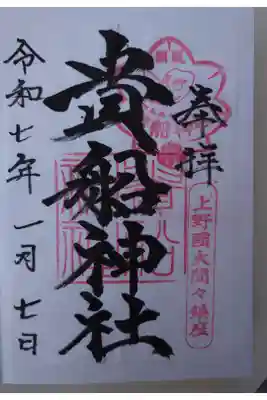 奉拝
上野國大間々鎮座
貴船神社
令和七年一月七日